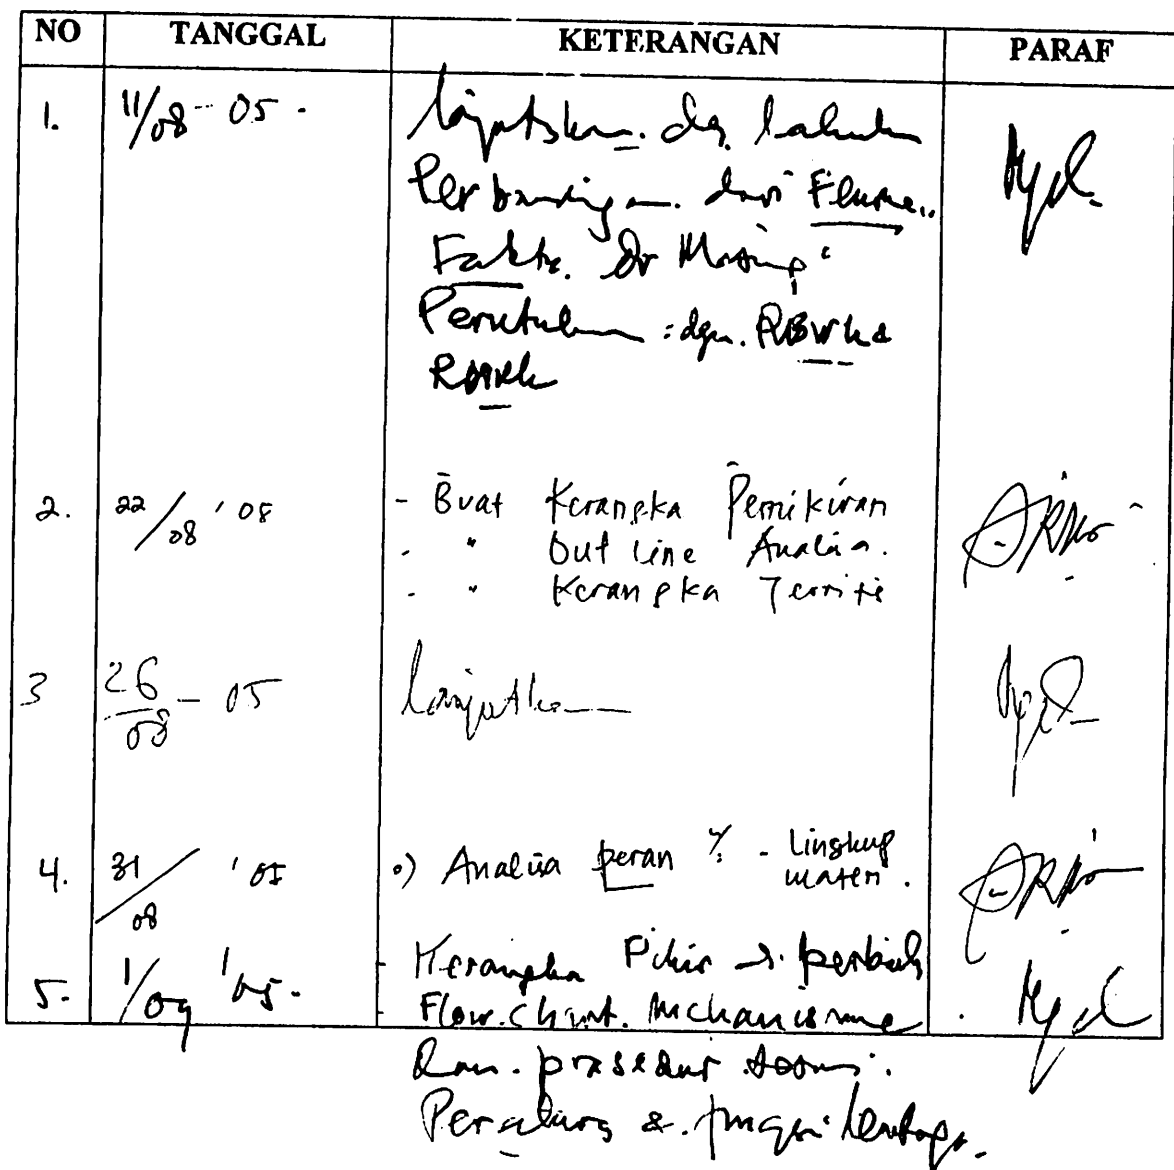 NO TANGGAL KETERANGAN PARAF
1. 11/08 - 05. Lanjutskan. dg. lakukan
Perbandingan. dari
Fakta. Masing"
dgn.
2. 22/08 '05 - Buat Kerangka Pemikiran
- " Out line Analisa.
- " Kerangka Teoritis
3 26/08 - 05 Lanjutkan
4. 31/08 '05 o) Analisa peran - Lingkup
materi.
5. 1/09 '05. - Kerangka Pikir di perbaiki
- Flow. Chart. Mechanisme
Dan. prosedur
& fungsi lembaga.